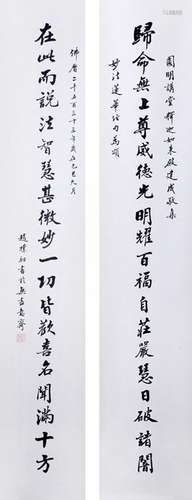 圓明講堂釋迦如來殿建成敬集
歸命無上尊威德光明耀百福自莊嚴慧日破諸闇
妙法蓮華經句為頌
佛曆二千五百三十三年歲在己巳月
在此而說法智慧甚微妙一切皆歡喜名聞滿十方
趙樸初書於無盡意齋